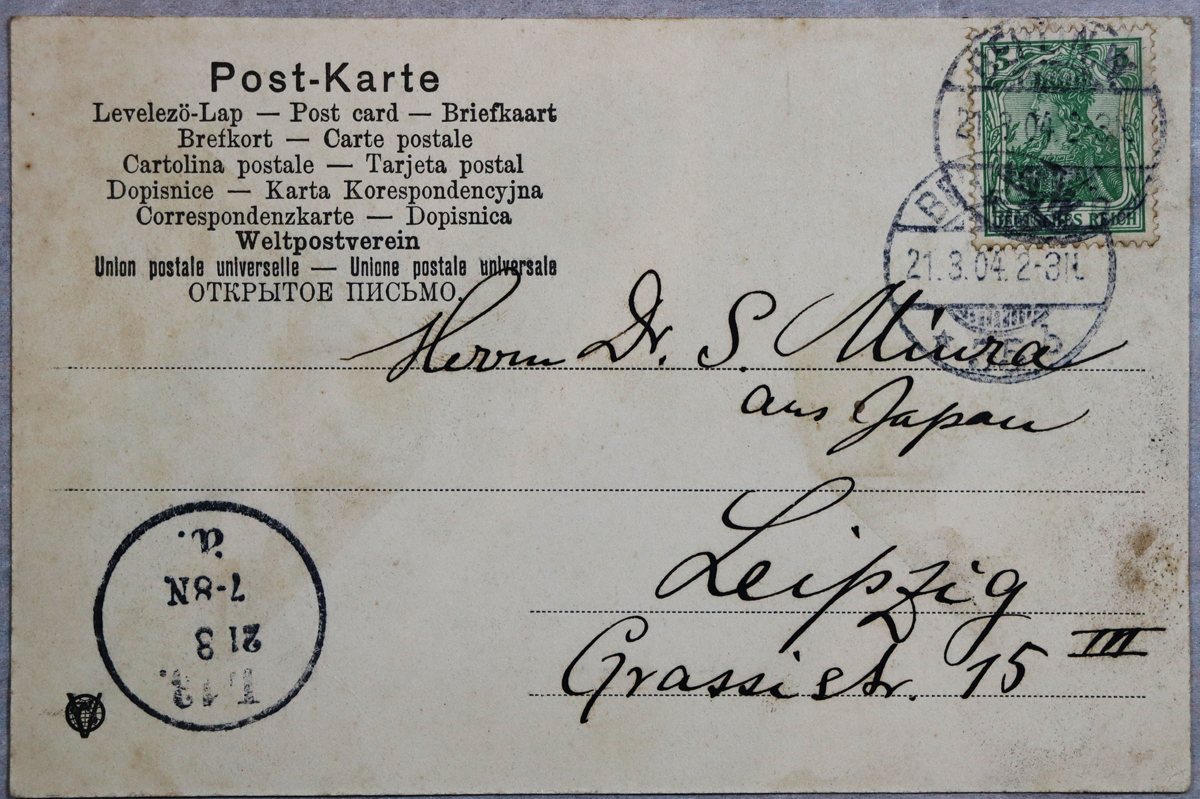 Post-Karte
Levelezö-Lap — Post card — Briefkaart
Brefkort — Carte postale
Cartolina postale — Tarjeta postal
Dopisnice — Karta Korespondencyjna
Correspondenzkarte — Dopisnica
Weltpostverein
Union postale universelle — Unione postale universale
ОТКРЫТОЕ ПИСЬМО.
5 5
DEUTSCHES REICH
21.3.04. 2-3N.
Herrn Dr. S. Miura
aus Japan
Leipzig
Grassistr. 15 III
L.13.
21 3
7-8N
a.